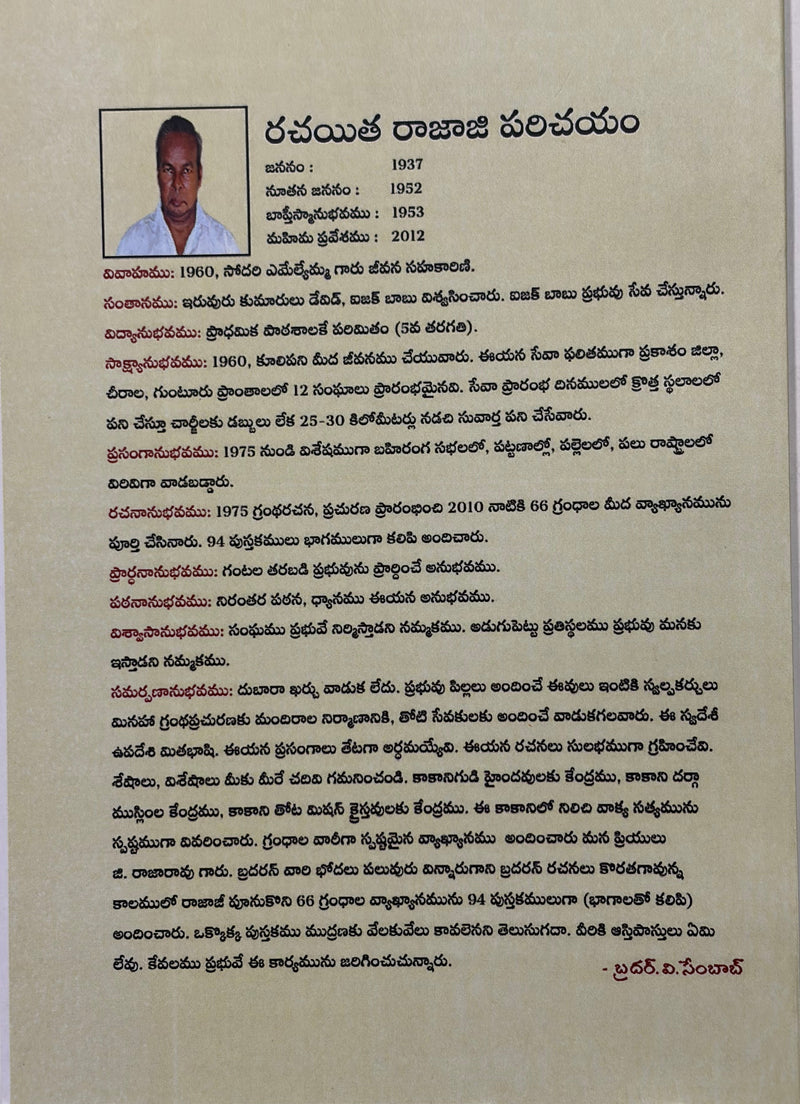 రచయిత రాజాజి పరిచయం
జననం : 1937
నూతన జననం : 1952
బాప్తీస్మానుభవము : 1953
మహిమ ప్రవేశము : 2012
వివాహము: 1960, సోదరి ఎమేల్యేమ్మ గారు జీవన సహకారిణి.
సంతానము: ఇరువురు కుమారులు డేవిడ్, ఐజక్ బాబు విశ్వసించారు. ఐజక్ బాబు ప్రభువు సేవ చేస్తున్నారు.
విద్యానుభవము: ప్రాధమిక పాఠశాలకే పరిమితం (5వ తరగతి).
సాక్ష్యానుభవము: 1960, కూలిపని మీద జీవనము చేయువారు. ఈయన సేవా ఫలితముగా ప్రకాశం జిల్లా,
చీరాల, గుంటూరు ప్రాంతాలలో 12 సంఘాలు ప్రారంభమైనవి. సేవా ప్రారంభ దినములలో క్రొత్త స్థలాలలో
పని చేస్తూ చార్జీలకు డబ్బులు లేక 25-30 కిలోమీటర్లు నడచి సువార్త పని చేసేవారు.
ప్రసంగానుభవము: 1975 నుండి విశేషముగా బహిరంగ సభలలో, పట్టణాల్లో, పల్లెలలో, పలు రాష్ట్రాలలో
విరివిగా వాడబడ్డారు.
రచనానుభవము: 1975 గ్రంథరచన, ప్రచురణ ప్రారంభించి 2010 నాటికి 66 గ్రంధాల మీద వ్యాఖ్యానమును
పూర్తి చేసినారు. 94 పుస్తకములు భాగములుగా కలిపి అందించారు.
ప్రార్ధనానుభవము: గంటల తరబడి ప్రభువును ప్రార్దించే అనుభవము.
పఠనానుభవము: నిరంతర పఠన, ధ్యానము ఈయన అనుభవము.
విశ్వాసానుభవము: సంఘము ప్రభువే నిర్మిస్తాడని నమ్మకము. అడుగుపెట్టు ప్రతిస్థలము ప్రభువు మనకు
ఇస్తాడని నమ్మకము.
సమర్పణానుభవము: దుబారా ఖర్చు వాడుక లేదు. ప్రభువు పిల్లలు అందించే ఈవులు ఇంటికి స్వల్పఖర్చులు
మినహా గ్రంథప్రచురణకు మందిరాల నిర్మాణానికి, తోటి సేవకులకు అందించే వాడుకగలవారు. ఈ స్వదేశీ
ఉపదేశి మితభాషి. ఈయన ప్రసంగాలు తేటగా అర్ధమయ్యేవి. ఈయన రచనలు సులభముగా గ్రహించేవి.
శేషాలు, విశేషాలు మీకు మీరే చదివి గమనించండి. కాకానిగుడి హైందవులకు కేంద్రము, కాకాని దర్గా
ముస్లింల కేంద్రము, కాకాని తోట మిషన్ క్రైస్తవులకు కేంద్రము. ఈ కాకానిలో నిలిచి వాక్య సత్యమును
స్పష్టముగా వివరించారు. గ్రంధాల వారీగా స్పష్టమైన వ్యాఖ్యానము అందించారు మన ప్రియులు
జి. రాజారావు గారు. బ్రదరన్ వారి భోదలు పలువురు విన్నారుగాని బ్రదరన్ రచనలు కొరతగావున్న
కాలములో రాజాజీ పూనుకొని 66 గ్రంధాల వ్యాఖ్యానమును 94 పుస్తకములుగా (భాగాలతో కలిపి)
అందించారు. ఒక్కొక్క పుస్తకము ముద్రణకు వేలకువేలు కావలెనని తెలుసుగదా. వీరికి ఆస్తిపాస్తులు ఏమి
లేవు. కేవలము ప్రభువే ఈ కార్యమును జరిగించుచున్నారు.
- బ్రదర్. వి. సేంబాబ్